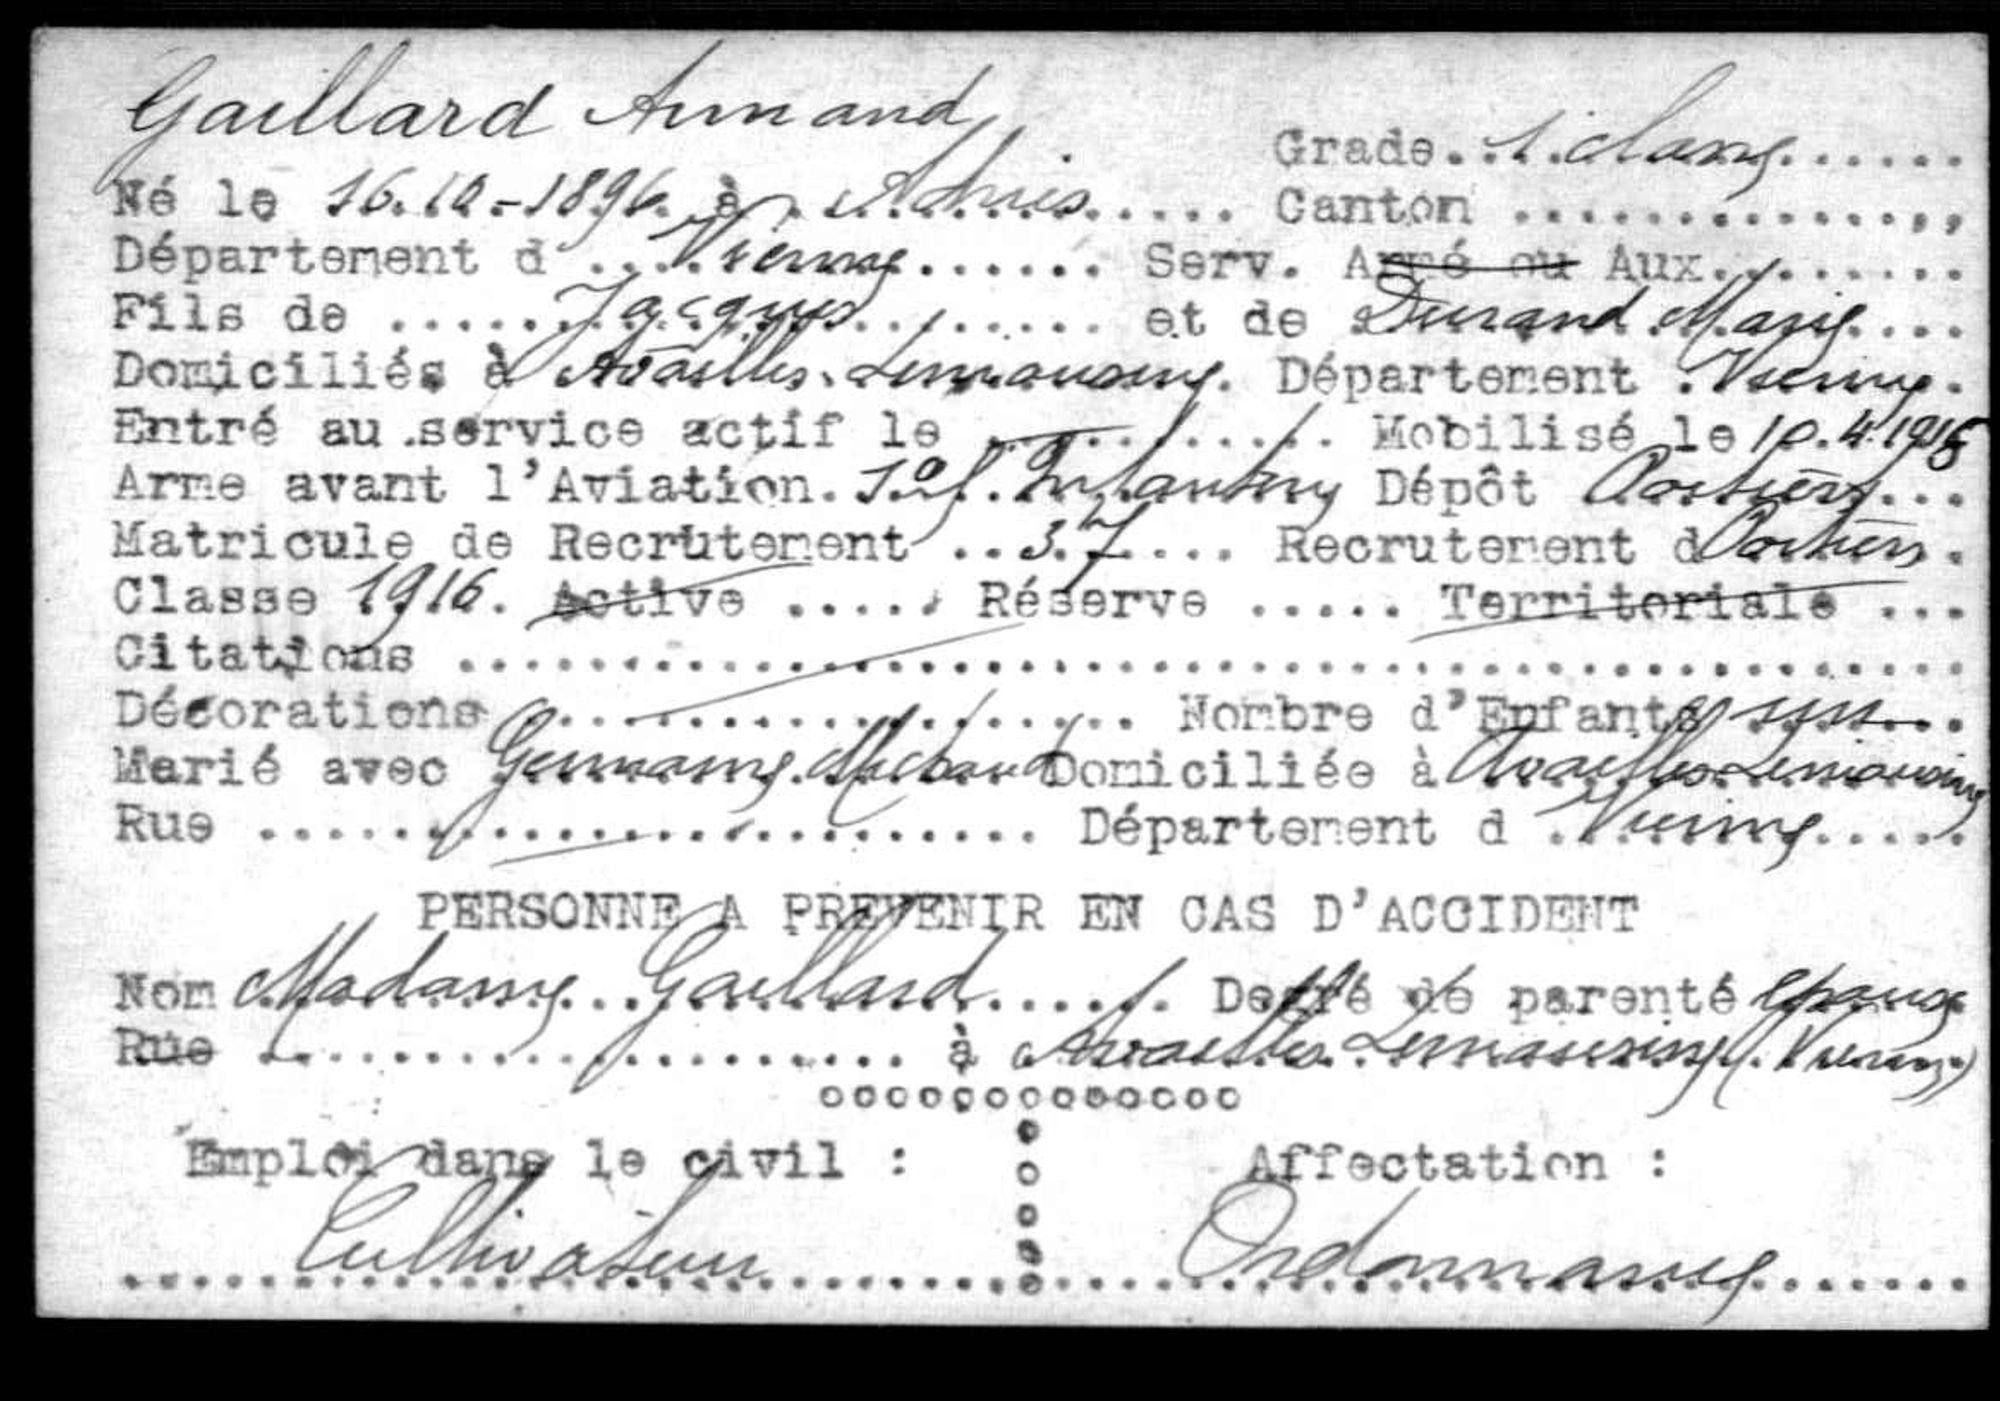 Gaillard Armand
Grade. 1. classe
Né le 16.10-1896 à Adris Canton
Département d Vienne Serv. Armé ou Aux.
Fils de Jacques et de Durand Marie
Domiciliés à Availles-Limouzine. Département Vienne.
Entré au service actif le Mobilisé le 10.4.1915
Arme avant l'Aviation. Infanterie Dépôt Poitiers
Matricule de Recrutement 37 Recrutement d Poitiers.
Classe 1916. Active Réserve Territoriale
Citations
Décorations Nombre d'Enfants un
Marié avec Germaine Michaud Domiciliée à Availles-Limouzine
Rue Département d Vienne
PERSONNE A PREVENIR EN CAS D'ACCIDENT
Nom Madame Gaillard Degré de parenté épouse
Rue à Availles Limouzine (Vienne)
Emploi dans le civil : Affectation :
Cultivateur Ordonnance